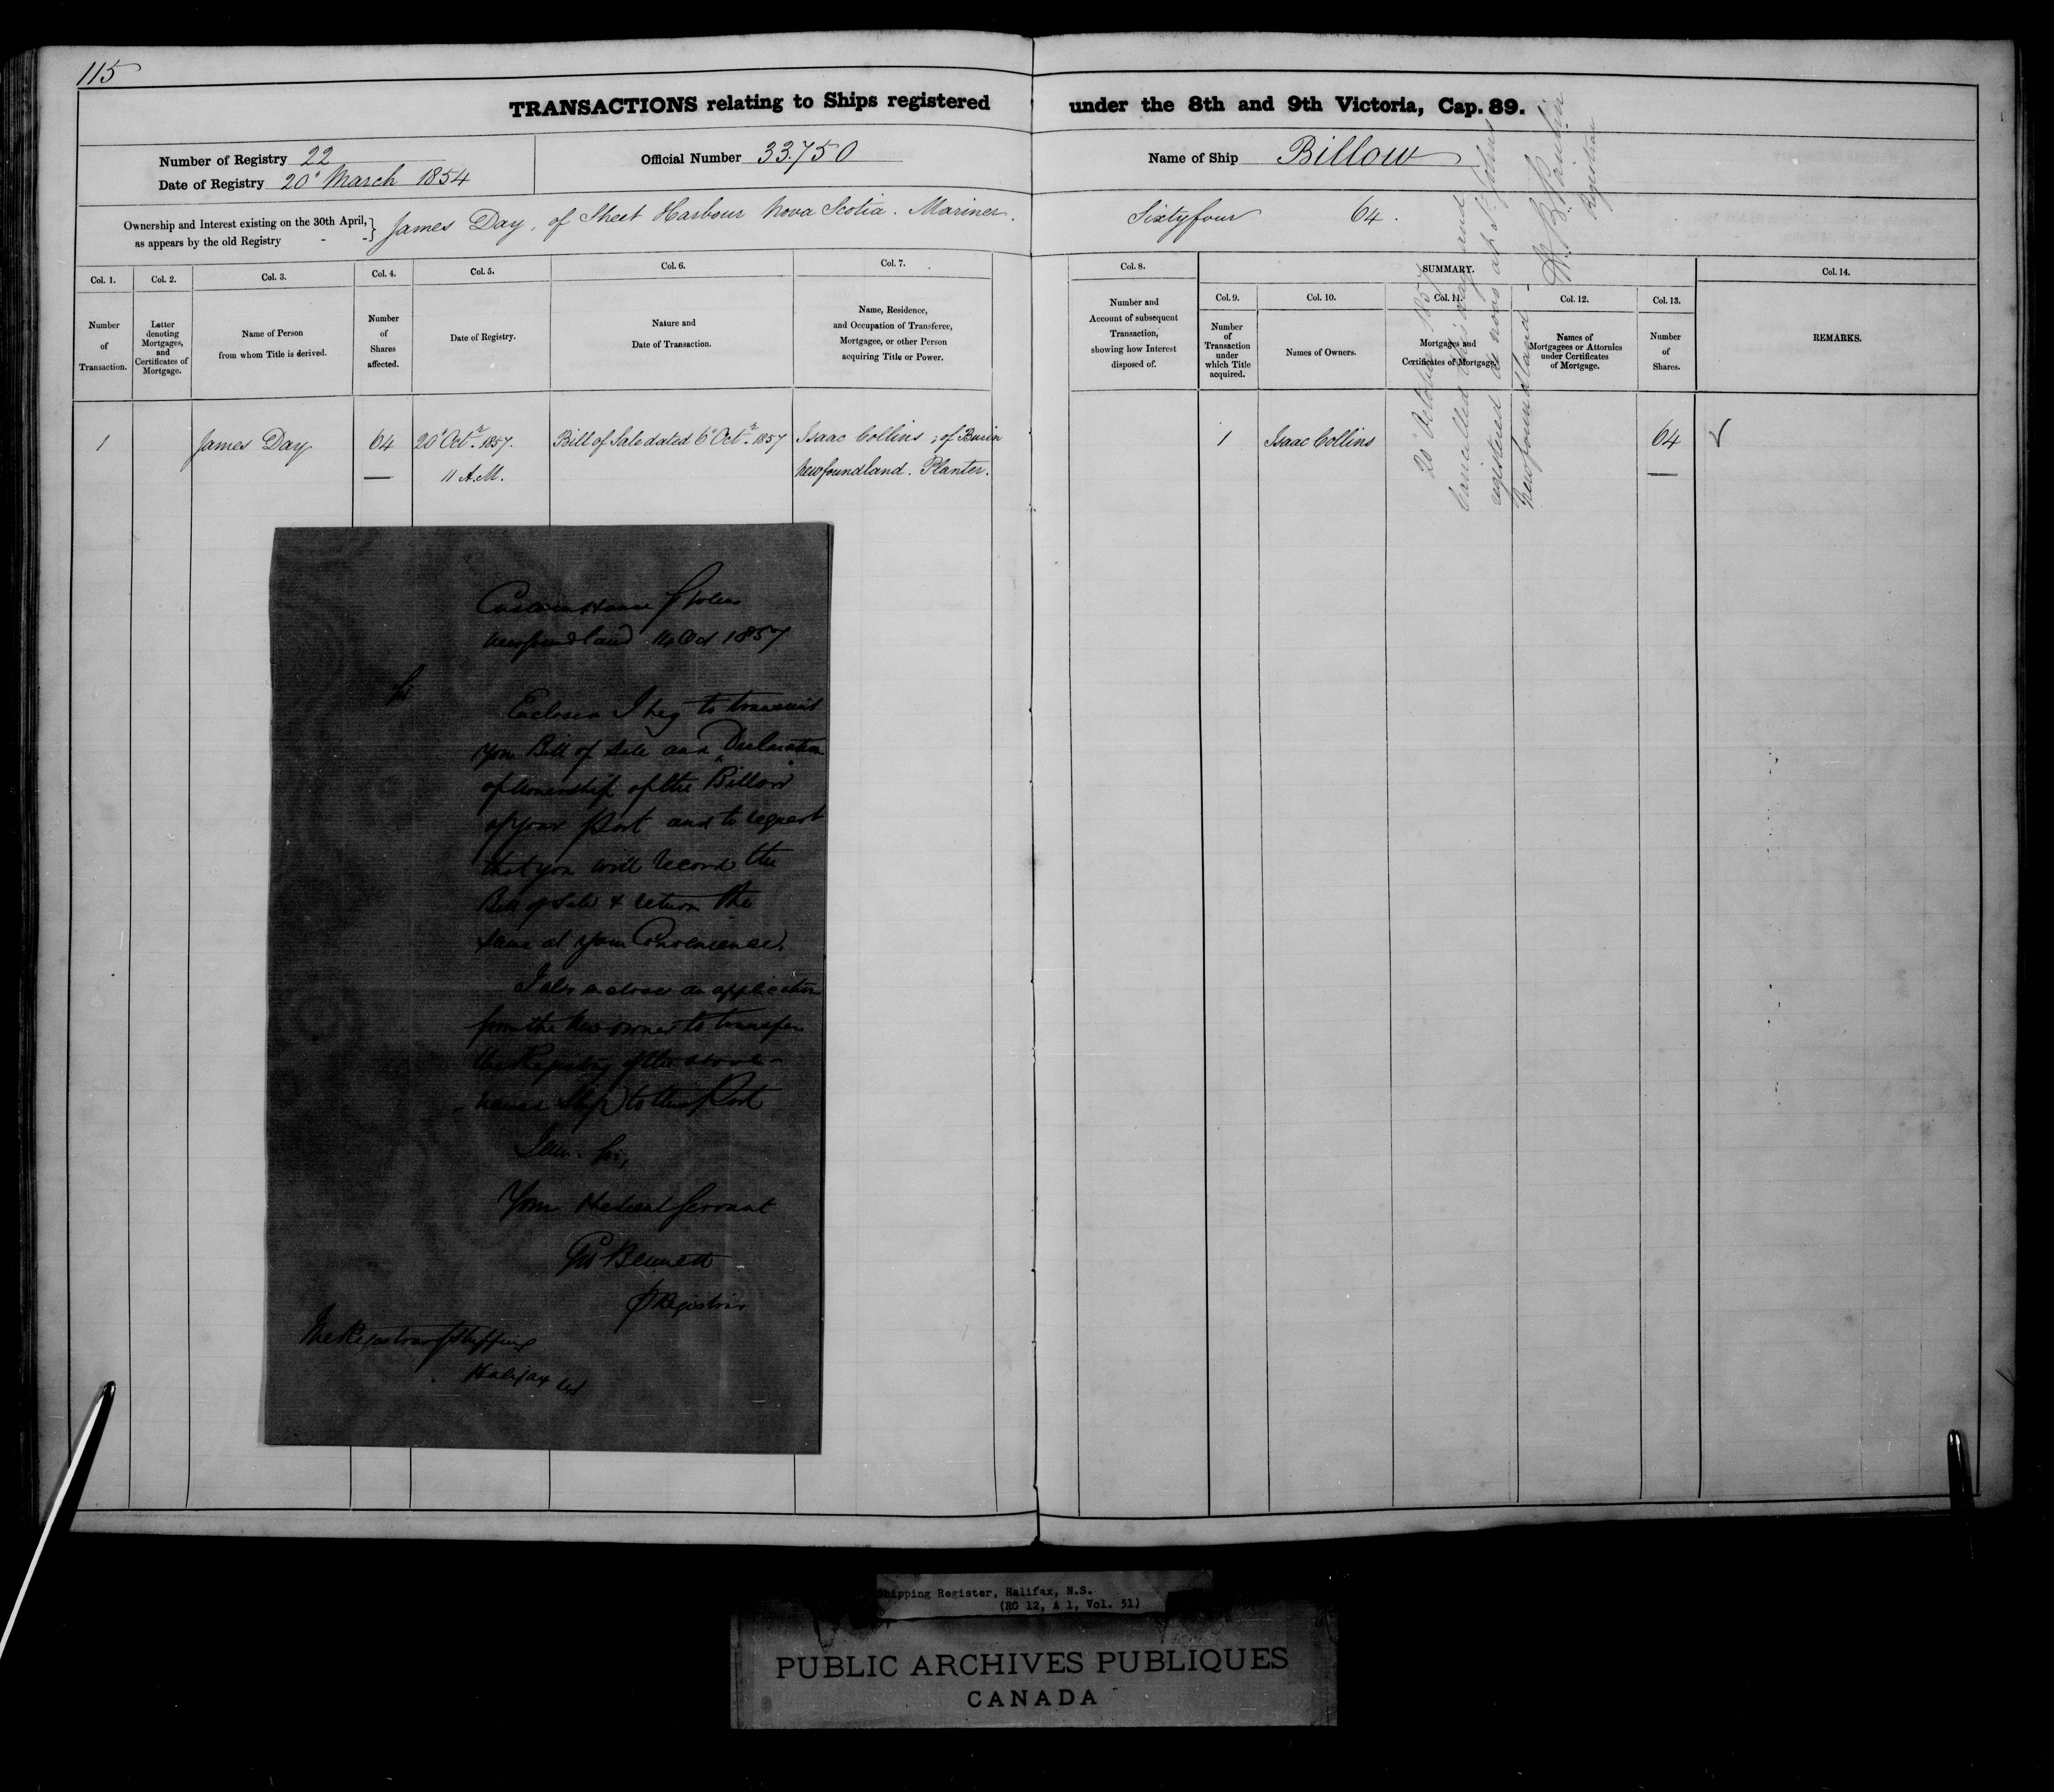 115
TRANSACTIONS relating to Ships registered under the 8th and 9th Victoria, Cap. 89.
Number of Registry 22
Date of Registry 20' March 1854
Official Number 33.750
Name of Ship Billow
Ownership and Interest existing on the 30th April,
as appears by the old Registry
James Day, of Sheet Harbour Nova Scotia. Mariner. Sixtyfour 64.
Col. 1.
Number
of
Transaction.
Col. 2.
Letter
denoting
Mortgages,
and
Certificates of
Mortgage.
Col. 3.
Name of Person
from whom Title is derived.
Col. 4.
Number
of
Shares
affected.
Col. 5.
Date of Registry.
Col. 6.
Nature and
Date of Transaction.
Col. 7.
Name, Residence,
and Occupation of Transferee,
Mortgagee, or other Person
acquiring Title or Power.
Col. 8.
Number and
Account of subsequent
Transaction,
showing how Interest
disposed of.
SUMMARY.
Col. 9.
Number
of
Transaction
under
which Title
acquired.
Col. 10.
Names of Owners.
Col. 11.
Mortgages and
Certificates of Mortgage.
Col. 12.
Names of
Mortgagees or Attornies
under Certificates
of Mortgage.
Col. 13.
Number
of
Shares.
Col. 14.
REMARKS.
1 James Day 64 20' Octr. 1857. Bill of Sale dated 6' Octr. 1857 Isaac Collins; of Burin
11 A.M. Newfoundland. Planter.
1 Isaac Collins 64
20' October 1857
Cancelled this day and
registered de novo at St. Johns
Newfoundland
Registrar
Custom House St Johns
Newfoundland 14 Oct 1857
Sir
Enclosed I beg to transmit
you Bill of Sale and Declaration
of Ownership of the "Billow"
of your Port and to request
that you will record the
Bill of Sale & return the
same at your Convenience.
I also enclose an application
from the New owner to transfer
the Registry of the above-
named Ship to this Port
I am Sir,
Your Obedient Servant
Bennett
Registrar
The Registrar of Shipping
Halifax NS
Shipping Register, Halifax, N.S.
(RG 12, A 1, Vol. 51)
PUBLIC ARCHIVES PUBLIQUES
CANADA